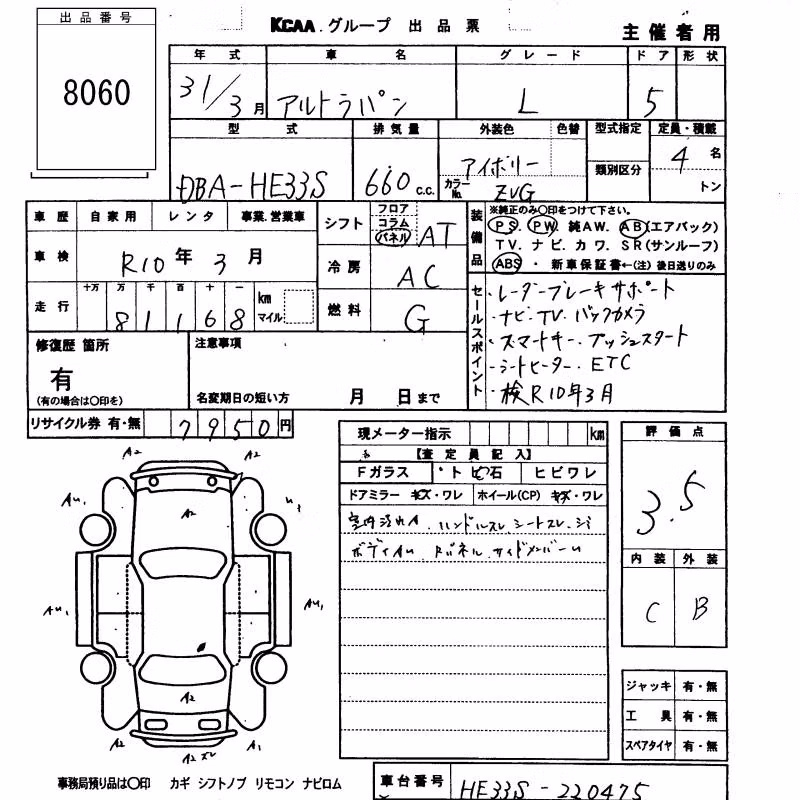 出品番号
8060
KCAA.グループ 出品票
主催者用
年式 車名 グレード ドア 形状
31/3月 アルトラパン L 5
型式 排気量 外装色 色替 型式指定 定員・積載
DBA-HE33S 660 c.c. アイボリー 4 名
カラーNo. ZVG 類別区分 トン
車歴 自家用 レンタ 事業.営業車
シフト フロア コラム パネル AT
装備品 ※純正のみ○印をつけて下さい。
PS. PW. 純AW. AB(エアバック)
TV. ナビ. カワ. SR(サンルーフ)
ABS ・ 新車保証書←(注)後日送りのみ
車検 R10年 3月
冷房 AC
走行 十万 万 千 百 十 一 km マイル
81168
燃料 G
セールスポイント
・レーダーブレーキサポート
・ナビ TV バックカメラ
・スマートキー プッシュスタート
・シートヒーター ETC
・検R10年3月
修復歴 箇所
有
(有の場合は○印を)
注意事項
名変期日の短い方 月 日まで
リサイクル券 有・無 7950円
現メーター指示 km
評価点
3.5
【査定員記入】
Fガラス ・トビ石 ヒビワレ
ドアミラー キズ・ワレ ホイール(CP) キズ・ワレ
ハンドルスレ シートスレ
ボディAU Rパネル サイドメンバーU
内装 外装
C B
A2 A2
AU1 A2 U1
AU1 AU1
A2
A2 A2 スレ A1
ジャッキ 有・無
工具 有・無
スペアタイヤ 有・無
事務局預り品は○印 カギ シフトノブ リモコン ナビロム
車台番号 HE33S-220475